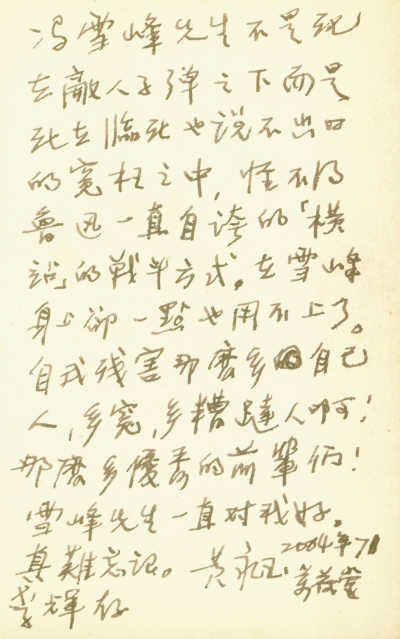 冯雪峰先生不是死
在敵人子彈之下而是
死在臨死也說不出口
的冤枉之中,怪不得
魯迅一直自誇的「橫
站」的戰鬥方式。在雪峰
身上卻一點也用不上了。
自我殘害那麼多自己
人,多冤,多糟蹋人啊!
那麼多優秀的前輩們!
雪峰先生一直對我好。
真難忘記。 黃永玉 2004年7月
李輝存 萬荷堂